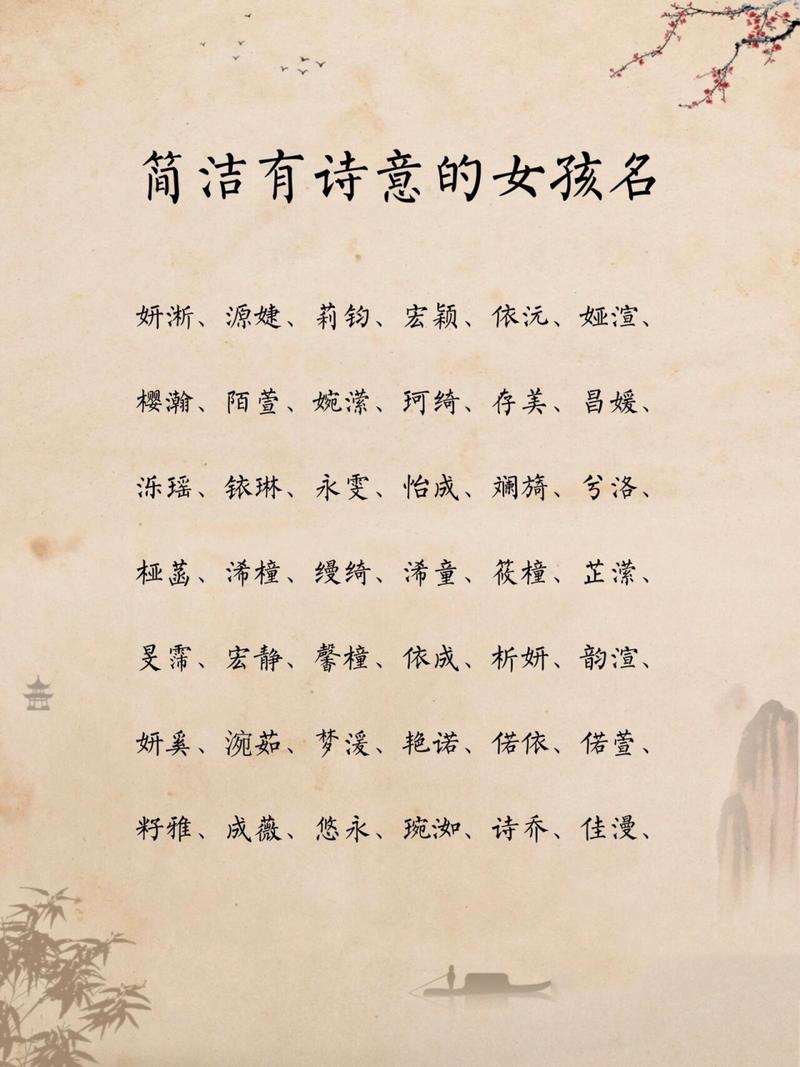 简洁有诗意的女孩名
妍淅、源婕、莉钧、宏颖、依沅、娅渲、
樱瀚、陌萱、婉潆、珂绮、存美、昌媛、
泺瑶、铱琳、永雯、怡成、斓旖、兮洛、
桠菡、浠橦、缦绮、浠童、筱橦、芷潆、
旻霈、宏静、馨橦、依成、析妍、韵渲、
妍奚、涴茹、梦湲、艳诺、偌依、偌萱、
籽雅、成薇、悠永、琬洳、诗乔、佳漫、